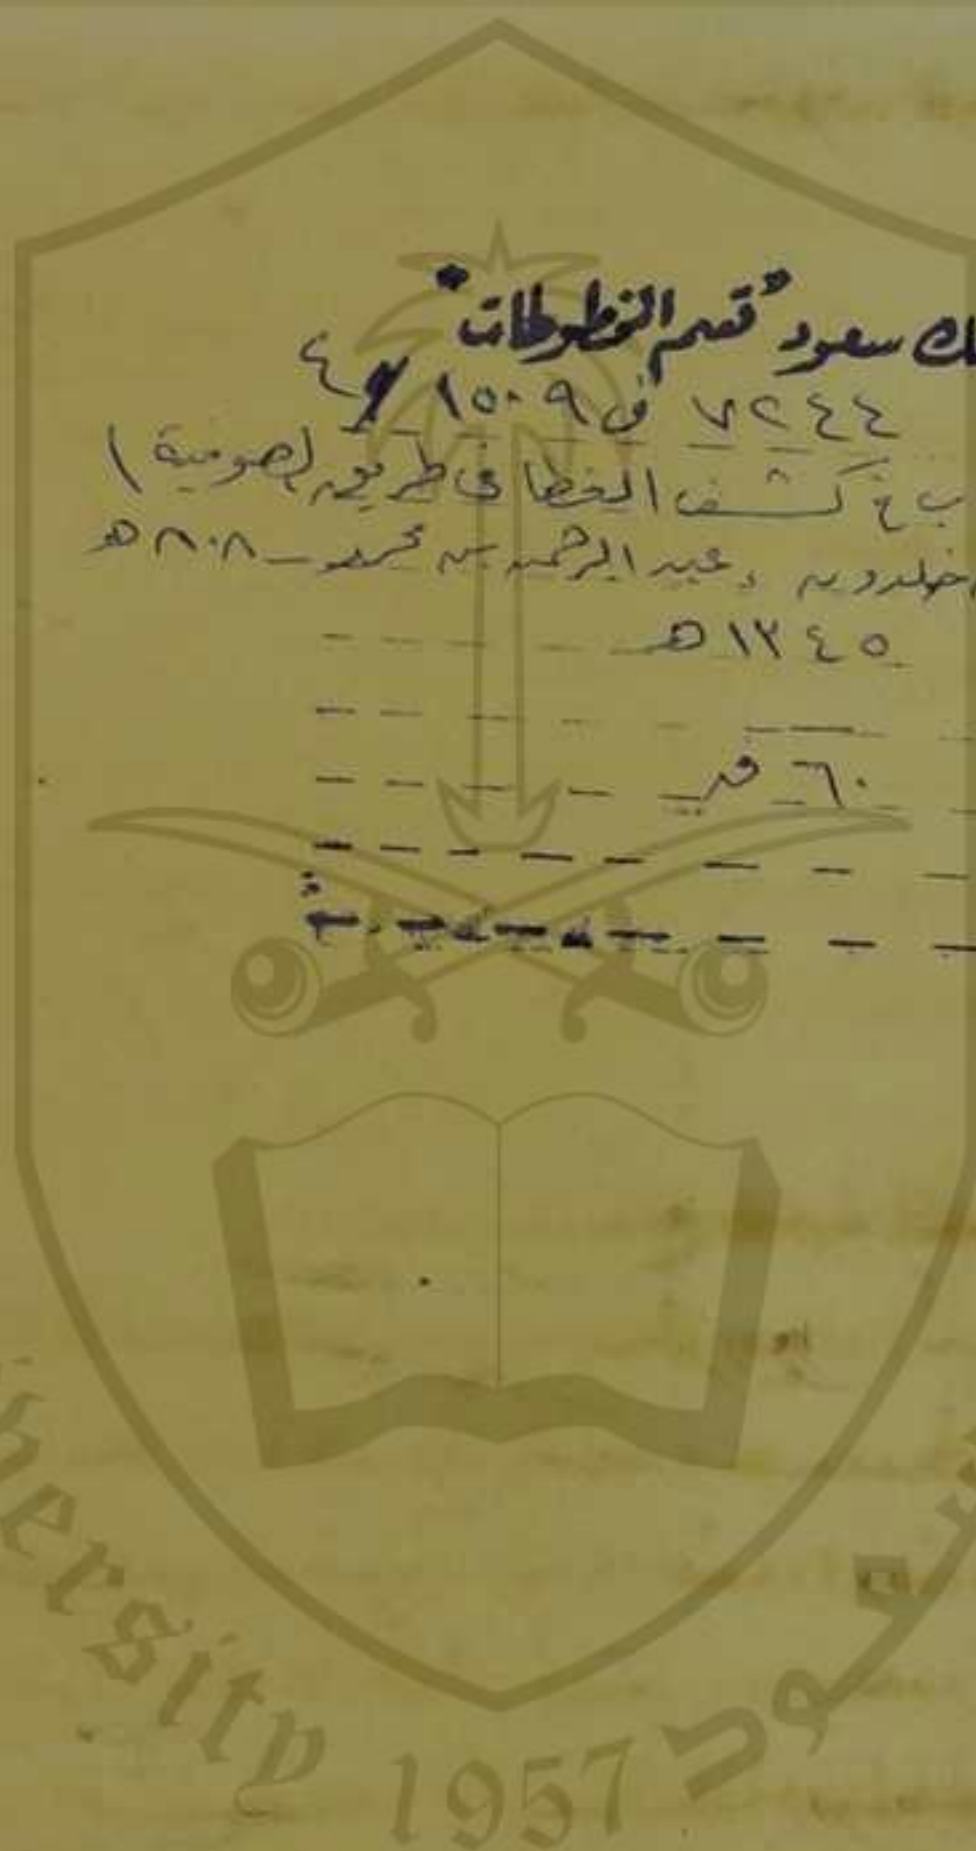 ك سعود "قسم المخطوطات"
٧٢٤٤ ف ١٥٠٩ / ٤
كشف الغطا في طريق الصوفية /
خلدون، عبد الرحمن بن محمد - ٨٠٨ هـ
١٣٤٥ هـ
٦٠ ق
versity 1957 سعود